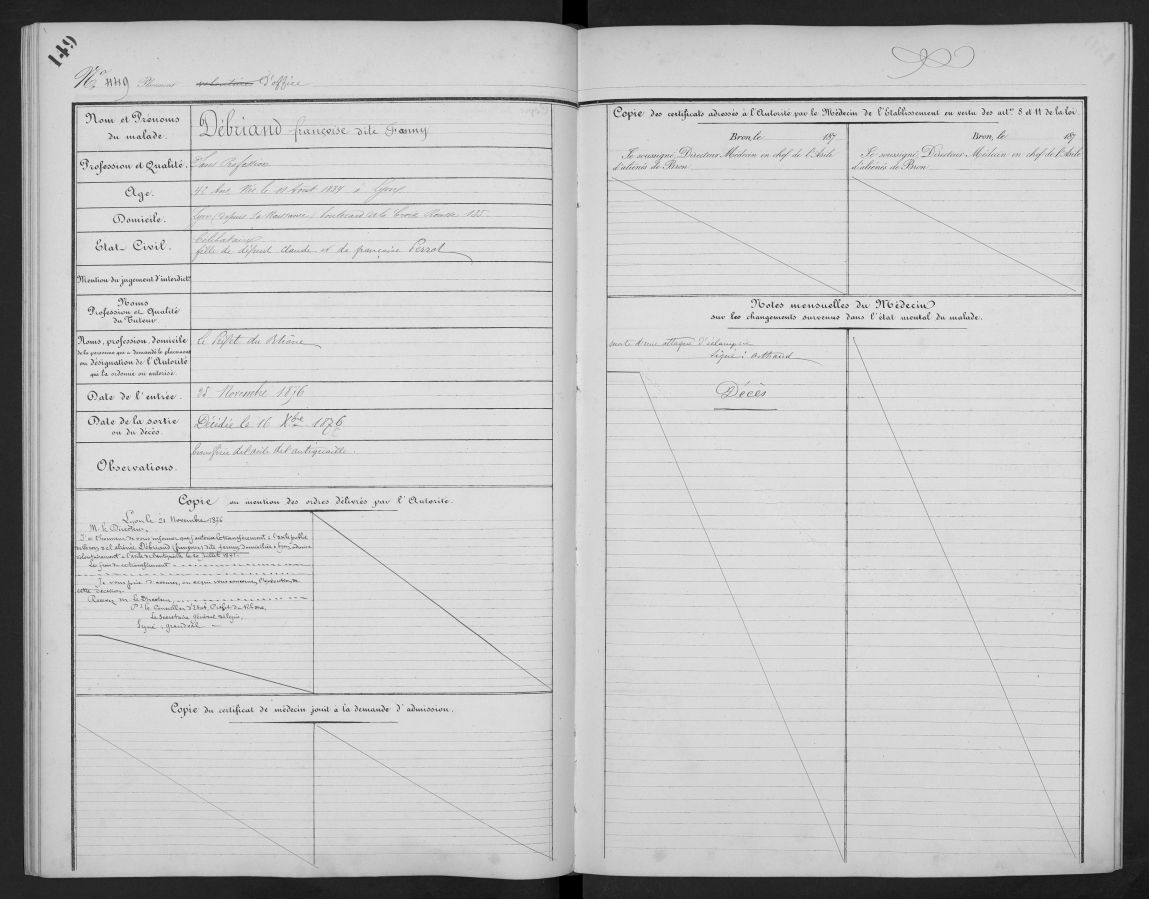 149
N° 449 Placement volontaire D'office
Nom et Prénoms
du malade.
Débriand françoise dite Fanny
Profession et Qualité.
Sans Profession
Age.
42 Ans Née le 11 Août 1834 à Lyon
Domicile.
Lyon (depuis sa Naissance) boulevard de la Croix Rousse 155
Etat Civil.
Célibataire
fille de défunt Claude et de françoise Perrot
Mention du jugement d'interdict.
Noms
Profession et Qualité
du Tuteur.
Noms, profession, domicile
de la personne qui a demandé le placement
ou désignation de l'Autorité
qui l'a ordonné ou autorisé.
Le Préfet du Rhône
Date de l'entrée.
25 Novembre 1876
Date de la sortie
ou du décès.
Décédée le 16 Xbre 1876
Observations.
transférée de l'asile de l'antiquaille.
Copie ou mention des ordres délivrés par l'Autorité.
Lyon le 21 Novembre 1876
M. le Directeur,
J'ai l'honneur de vous informer que j'autorise le transfèrement à l'asile public
de Bron de l'aliénée Débriand (françoise) dite fanny domiciliée à Lyon, admise
à l'asile de l'antiquaille le 20 Juillet
Les frais de ce transfèrement
Je vous prie d'assurer, en ce qui vous concerne, l'exécution de
cette décision.
Recevez M. le Directeur,
Pr le Conseiller d'Etat, Préfet du Rhône,
Le Secrétaire Général délégué,
Signé : grandval
Copie du certificat de médecin joint à la demande d'admission.
Copie des certificats adressés à l'Autorité par le Médecin de l'Etablissement en vertu des artes 8 et 11 de la loi
Bron, le 187
Je soussigné, Directeur Médecin en chef de l'Asile
d'aliénés de Bron
Bron, le 187
Je soussigné, Directeur Médecin en chef de l'Asile
d'aliénés de Bron
Notes mensuelles du Médecin
sur les changements survenus dans l'état mental du malade.
morte d'une attaque d'éclampsie
Signé : Arthaud
Décès